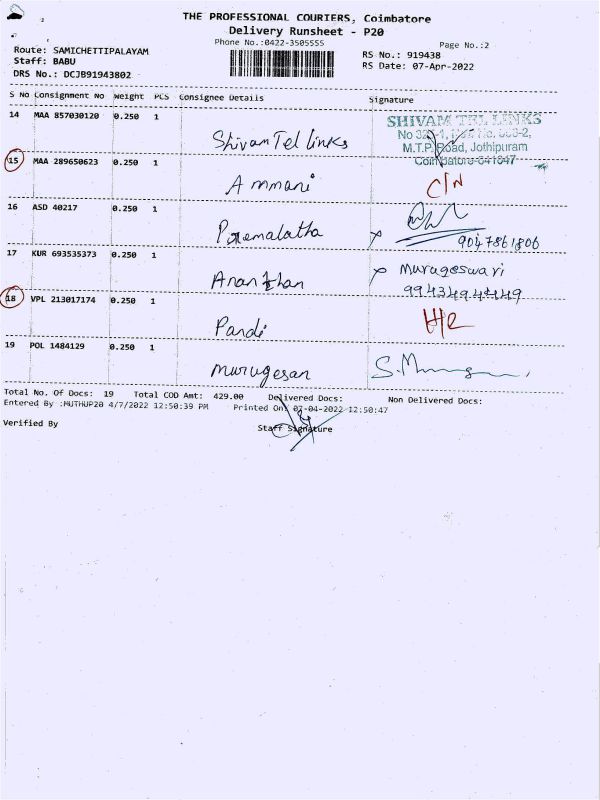 THE PROFESSIONAL COURIERS, Coimbatore
Delivery Runsheet - P20
Phone No.:0422-3505555
Page No.:2
Route: SAMICHETTIPALAYAM
Staff: BABU
DRS No.: DCJB91943802
RS No.: 919438
RS Date: 07-Apr-2022
S No Consignment No Weight PCS Consignee Details Signature
14 MAA 857030120 0.250 1 Shivam Tel links
SHIVAM TEL LINKS
M.T.P. Road, Jothipuram
Coimbatore-641047
15 MAA 289650623 0.250 1 Ammani C/N
16 ASD 40217 0.250 1 Premalatha 9047861806
17 KUR 693535373 0.250 1 Ananthan Murugeswari
9943494449
18 VPL 213017174 0.250 1 Pandi
19 POL 1484129 0.250 1 Murugesan
Total No. Of Docs: 19 Total COD Amt: 429.00 Delivered Docs: Non Delivered Docs:
Entered By :MUTHUP20 4/7/2022 12:50:39 PM Printed On: 07-04-2022 12:50:47
Verified By Staff Signature